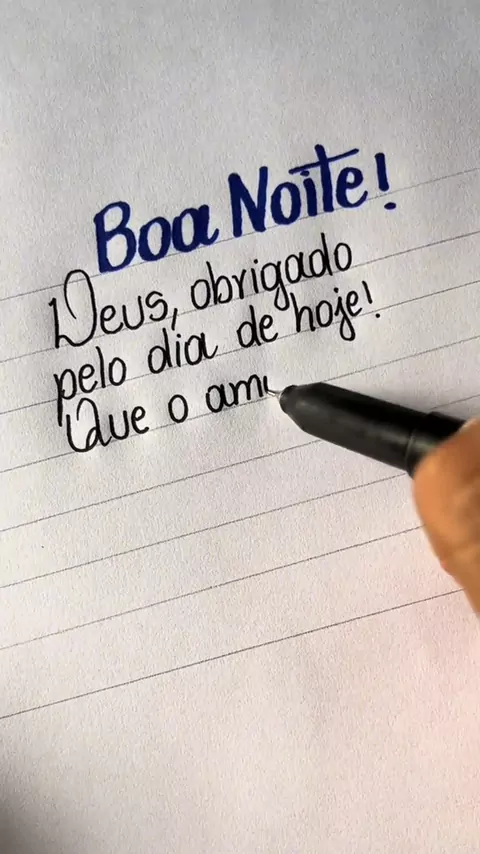 Boa Noite!
Deus, obrigado
pelo dia de hoje!
Que o am